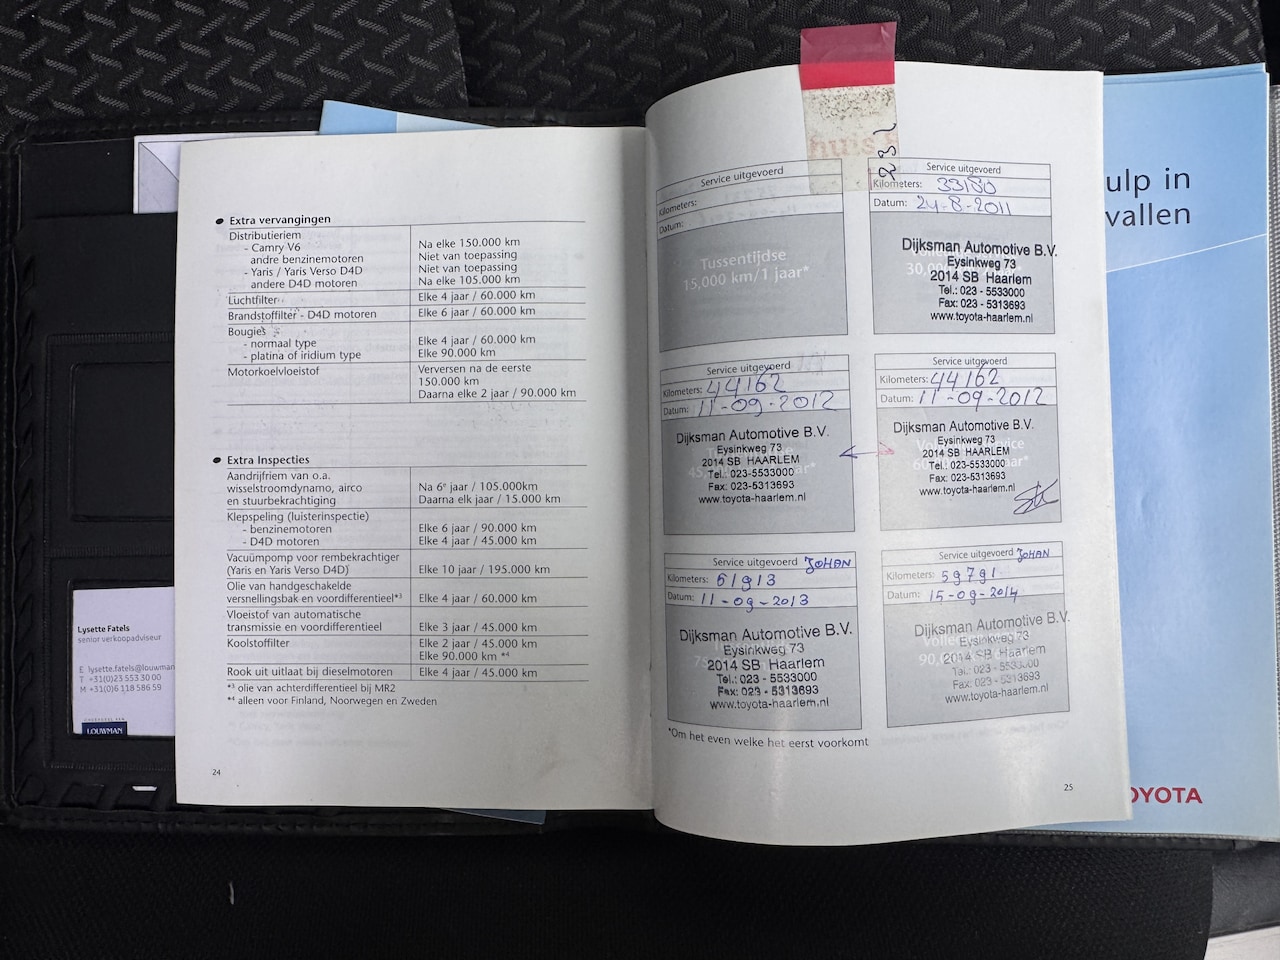 Extra vervangingen
Distributieriem
- Camry V6 Na elke 150.000 km
andre benzinemotoren Niet van toepassing
- Yaris / Yaris Verso D4D Niet van toepassing
andere D4D motoren Na elke 105.000 km
Luchtfilter Elke 4 jaar / 60.000 km
Brandstoffilter - D4D motoren Elke 6 jaar / 60.000 km
Bougies
- normaal type Elke 4 jaar / 60.000 km
- platina of iridium type Elke 90.000 km
Motorkoelvloeistof Verversen na de eerste
150.000 km
Daarna elke 2 jaar / 90.000 km
Extra Inspecties
Aandrijfriem van o.a.
wisselstroomdynamo, airco Na 6e jaar / 105.000km
en stuurbekrachtiging Daarna elk jaar / 15.000 km
Klepspeling (luisterinspectie)
- benzinemotoren Elke 6 jaar / 90.000 km
- D4D motoren Elke 4 jaar / 45.000 km
Vacuümpomp voor rembekrachtiger
(Yaris en Yaris Verso D4D) Elke 10 jaar / 195.000 km
Olie van handgeschakelde
versnellingsbak en voordifferentieel*3 Elke 4 jaar / 60.000 km
Vloeistof van automatische
transmissie en voordifferentieel Elke 3 jaar / 45.000 km
Koolstoffilter Elke 2 jaar / 45.000 km
Elke 90.000 km *4
Rook uit uitlaat bij dieselmotoren Elke 4 jaar / 45.000 km
*3 olie van achterdifferentieel bij MR2
*4 alleen voor Finland, Noorwegen en Zweden
24
Lysette Fatels
senior verkoopadviseur
E lysette.fatels@louwman
T +31(0)23 553 30 00
M +31(0)6 118 586 59
LOUWMAN
huis
232
Service uitgevoerd
Kilometers:
Datum:
Tussentijdse
15,000 km/1 jaar*
Service uitgevoerd
Kilometers: 33180
Datum: 24-8-2011
Dijksman Automotive B.V.
Eysinkweg 73
2014 SB Haarlem
Tel.: 023 - 5533000
Fax: 023 - 5313693
www.toyota-haarlem.nl
Service uitgevoerd
Kilometers: 44162
Datum: 11-09-2012
Dijksman Automotive B.V.
Eysinkweg 73
2014 SB HAARLEM
Tel.: 023-5533000
Fax: 023-5313693
www.toyota-haarlem.nl
Service uitgevoerd
Kilometers: 44162
Datum: 11-09-2012
Dijksman Automotive B.V.
Eysinkweg 73
2014 SB HAARLEM
Tel.: 023-5533000
Fax: 023-5313693
www.toyota-haarlem.nl
Service uitgevoerd JOHAN
Kilometers: 51913
Datum: 11-09-2013
Dijksman Automotive B.V.
Eysinkweg 73
2014 SB Haarlem
Tel.: 023 - 5533000
Fax: 023 - 5313693
www.toyota-haarlem.nl
Service uitgevoerd JOHAN
Kilometers: 59791
Datum: 15-09-2014
Dijksman Automotive B.V.
Eysinkweg 73
2014 SB Haarlem
Tel.: 023 - 5533000
Fax: 023 - 5313693
www.toyota-haarlem.nl
*Om het even welke het eerst voorkomt
25
ulp in
vallen
OYOTA